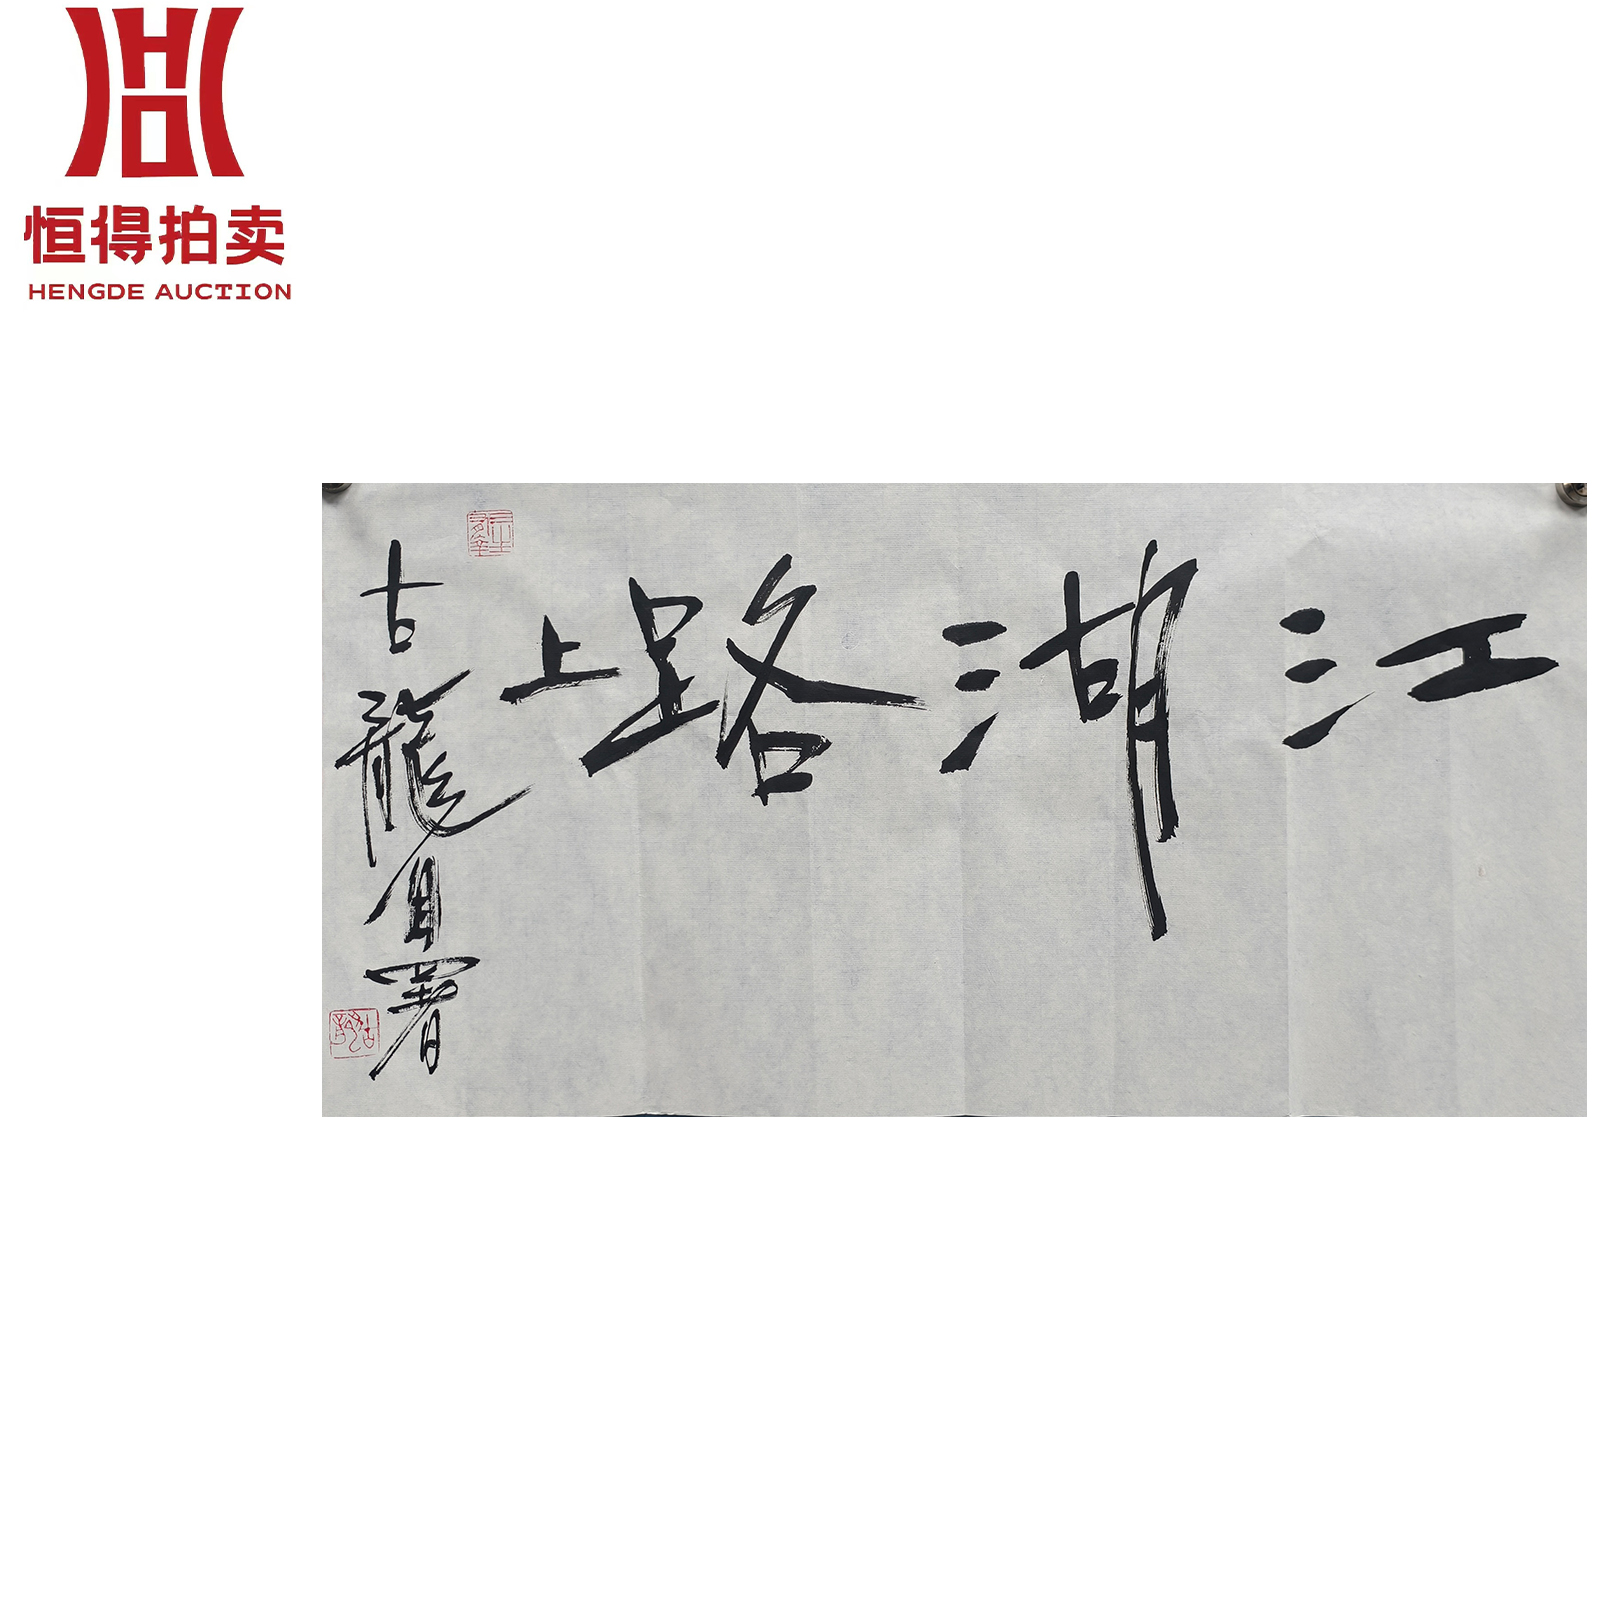 恒得拍卖
HENGDE AUCTION
江湖路上
古龍自署